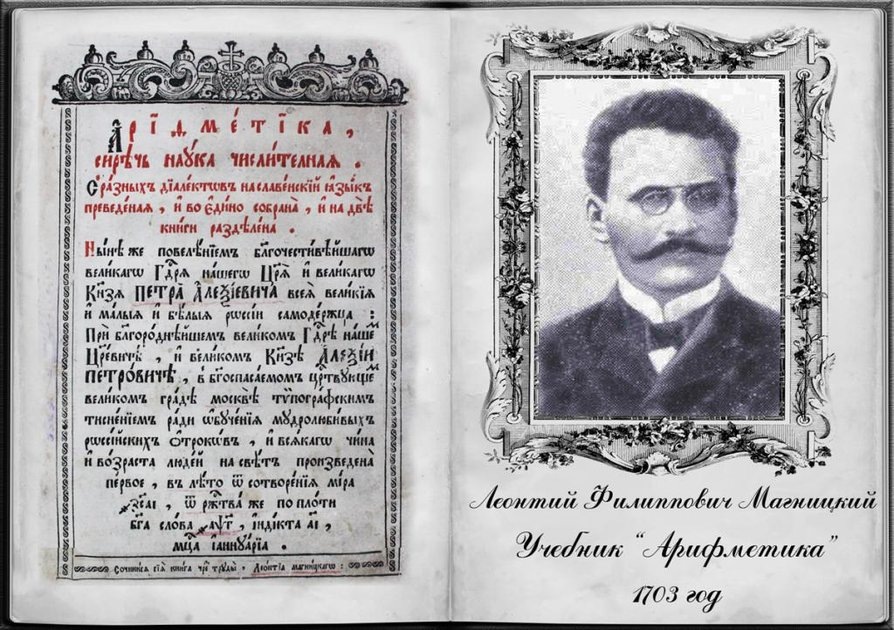 Арїѳме́тїка,
сирѣ́чь наꙋ́ка числи́телная.
С̾ ра́зныхъ дїале́ктѡвъ на славе́нскїй ꙗ҆зы́къ
преведе́ная, и҆ во є҆ди́но собрана̀, и҆ на двѣ̀
кни́ги раздѣле́на.
Ны́нѣ же повелѣ́нїемъ бл҃гочести́вѣйшагѡ
вели́кагѡ гд҇рѧ на́шегѡ цр҃ѧ̀ и҆ вели́кагѡ
кн҃зѧ ПЕТРА̀ А҆ЛЕѮІ́ЕВИЧА всеѧ̀ вели́кїѧ
и҆ ма́лыѧ и҆ бѣ́лыѧ рѡссі́и самоде́ржца:
При бл҃горо́днѣйшемъ вели́комъ гд҇рѣ на́шемъ
цр҃е́вичѣ, и҆ вели́комъ кн҃зѣ А҆ЛЕѮІ́И
ПЕТРО́ВИЧѢ, в̾ бг҃оспаса́емомъ ца́рствующемъ
вели́комъ гра́дѣ москвѣ̀ тѷпогра́фскимъ
тисне́нїемъ ра́ди ѡ҆бꙋче́нїѧ мꙋдролюби́выхъ
рѡссі́йскихъ ѻ҆́трокѡвъ, и҆ всѧ́кагѡ чи́на
и҆ во́зраста люде́й на свѣ́тъ произведена̀
пе́рвое, в̾ лѣ́то ѿ сотворе́нїѧ мі́ра
҂зсаі, ѿ рж҇тва̀ же по пло́ти
бг҃а сло́ва ҂аѱг, і҆нді́кта аі,
мц҇а і҆аннꙋа́рїа.
Сочини́сѧ сїѧ̀ кни́га чрез̾ трꙋды̀ Лео́нтїа магни́цкагѡ:
Леонтий Филиппович Магницкий
Учебник "Арифметика"
1703 год